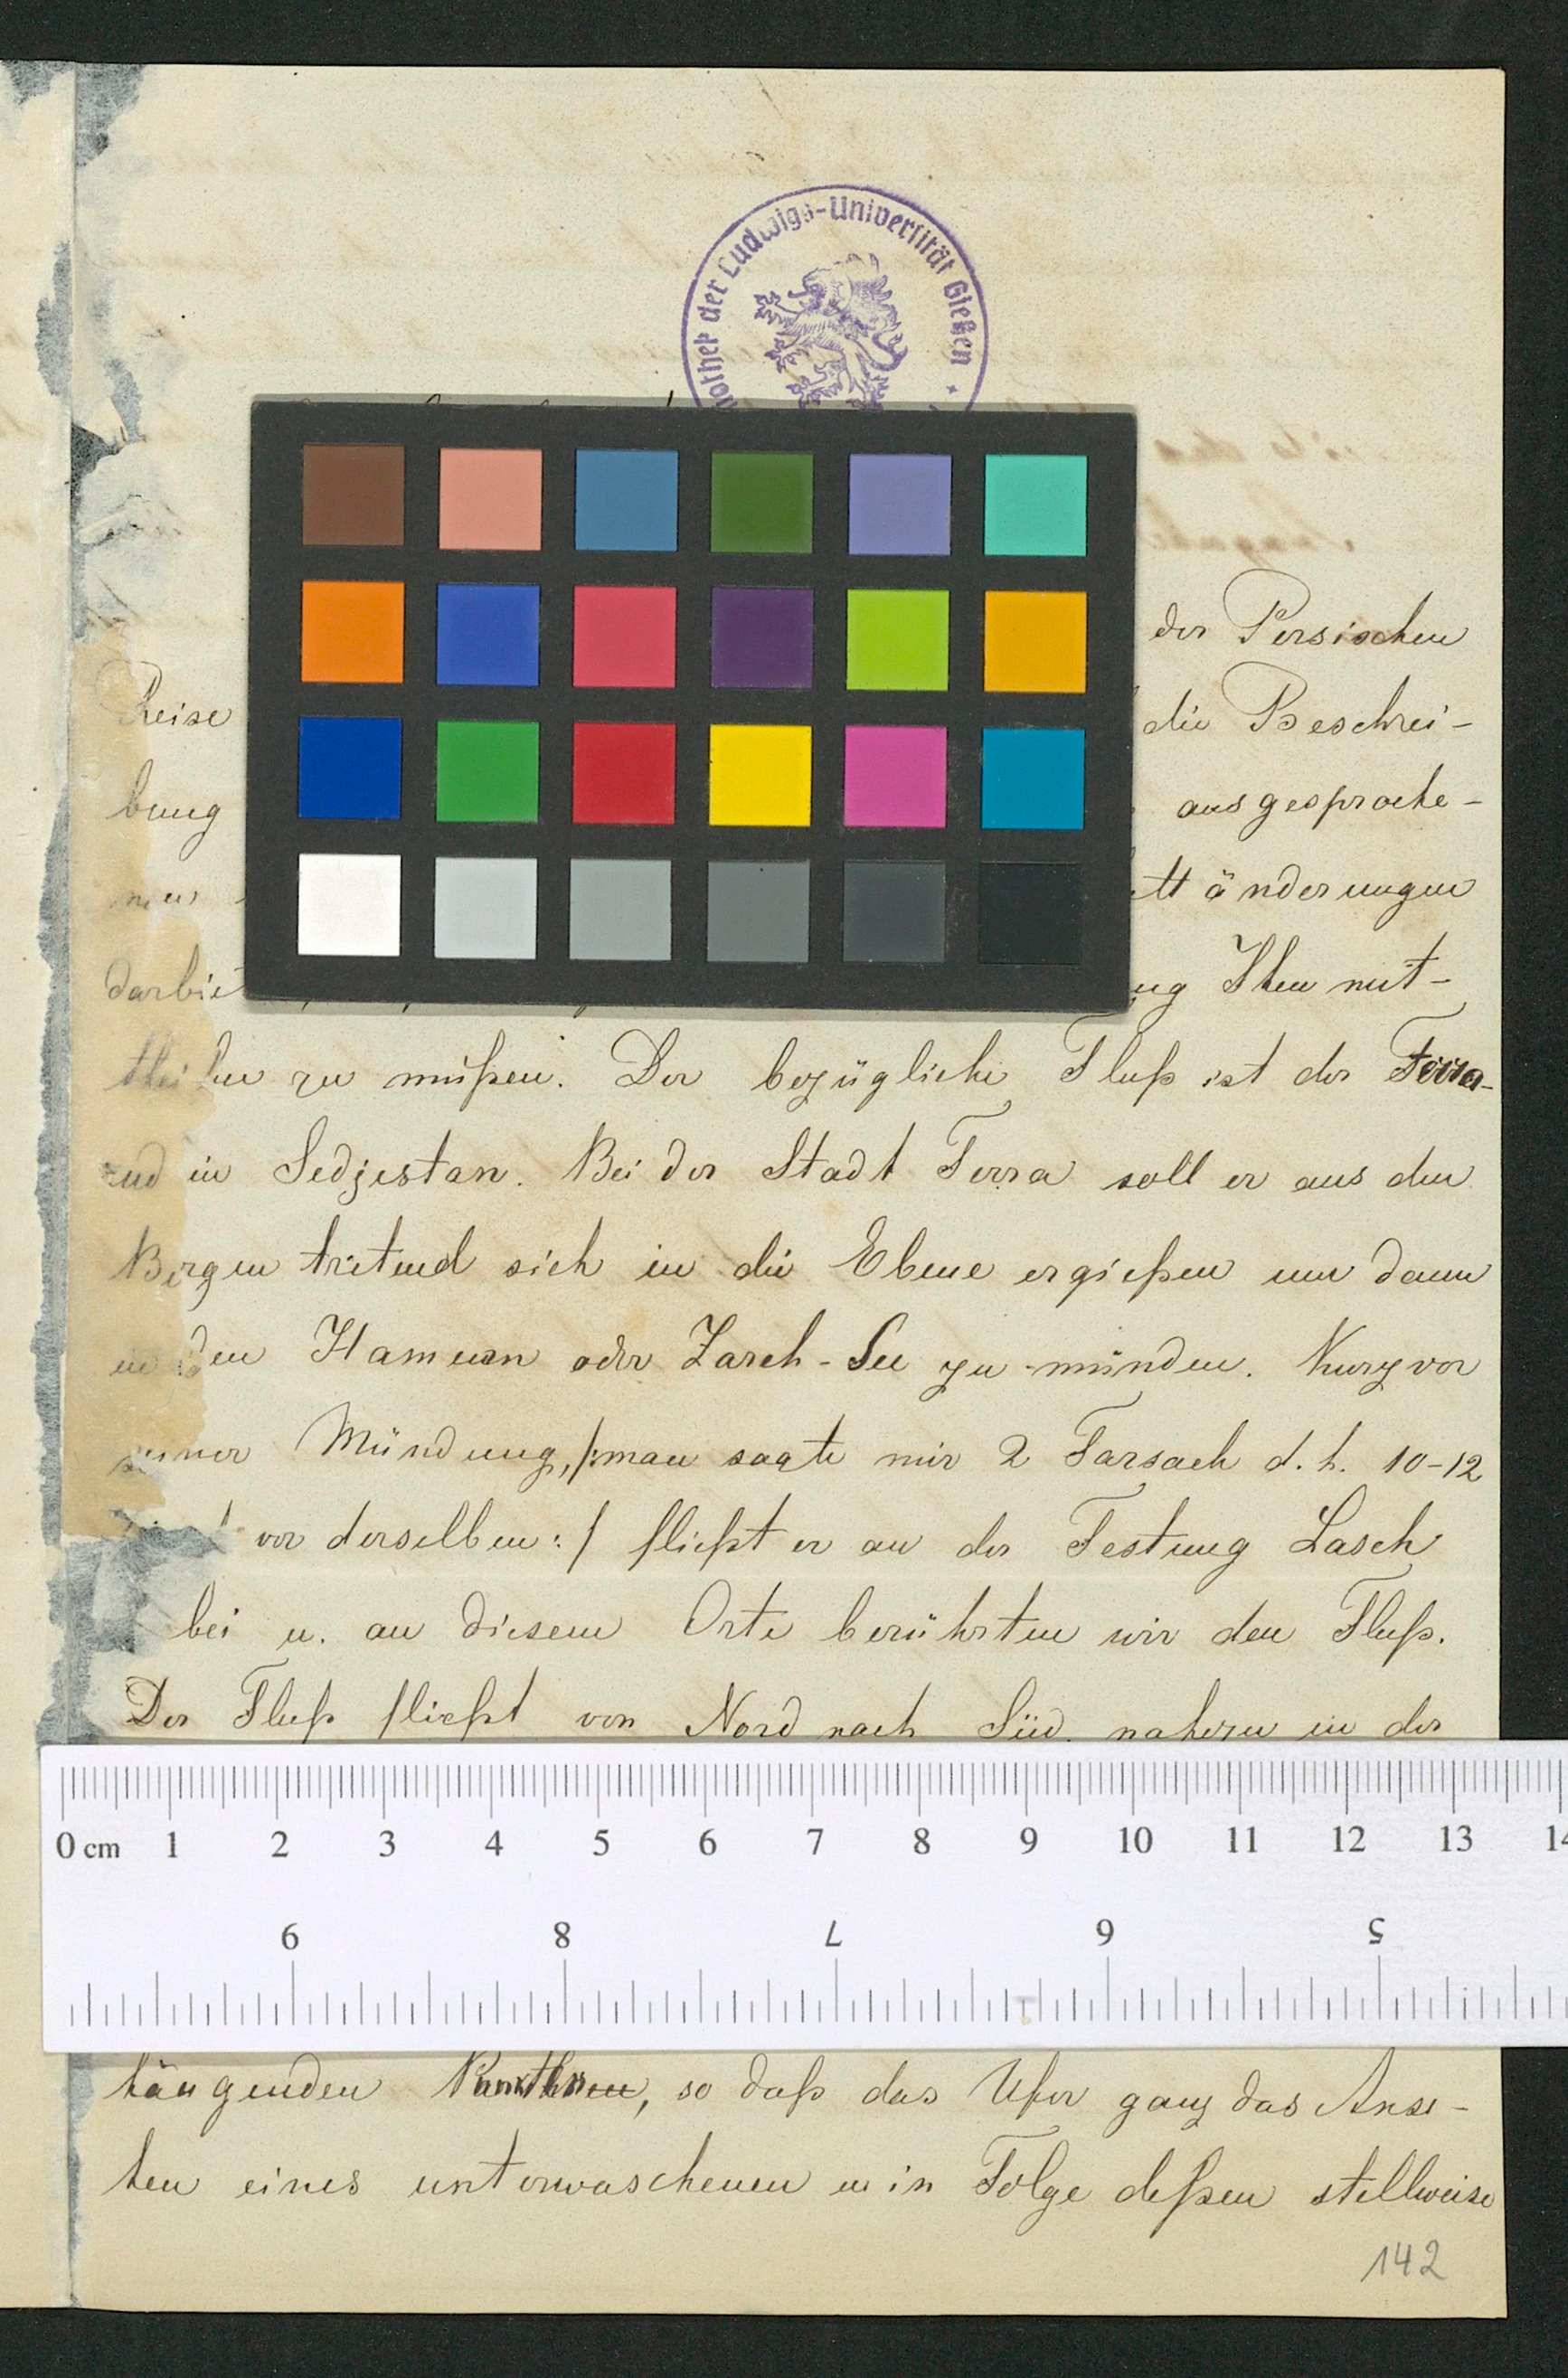 othek der Ludwigs-Universität Gießen
der Persischen
Reise die Beschrei-
bung ausgesproche-
nen ett änderungen
darbiet ung Ihen mit-
theilen zu müßen. Der bezügliche Fluß ist der Ferra-
rud in Sedjestan. Bei der Stadt Ferra soll er aus den
Bergen tretend sich in die Ebene ergießen um dann
in den Hamuun oder Zareh-See zu münden. Kurz vor
seiner Mündung, /:man sagte mir 2 Farsach d. h. 10-12
vor derselben:/ fließt er an der Festung Lasch
bei u. an diesem Orte berührten wir den Fluß.
Der Fluß fließt von Nord nach Süd. nahern in der
0 cm 1 2 3 4 5 6 7 8 9 10 11 12 13 14
9 8 7 6 5
hängenden so daß das Ufer ganz das Anse-
hen eines unterwaschenen u in Folge deßen stellweise
142